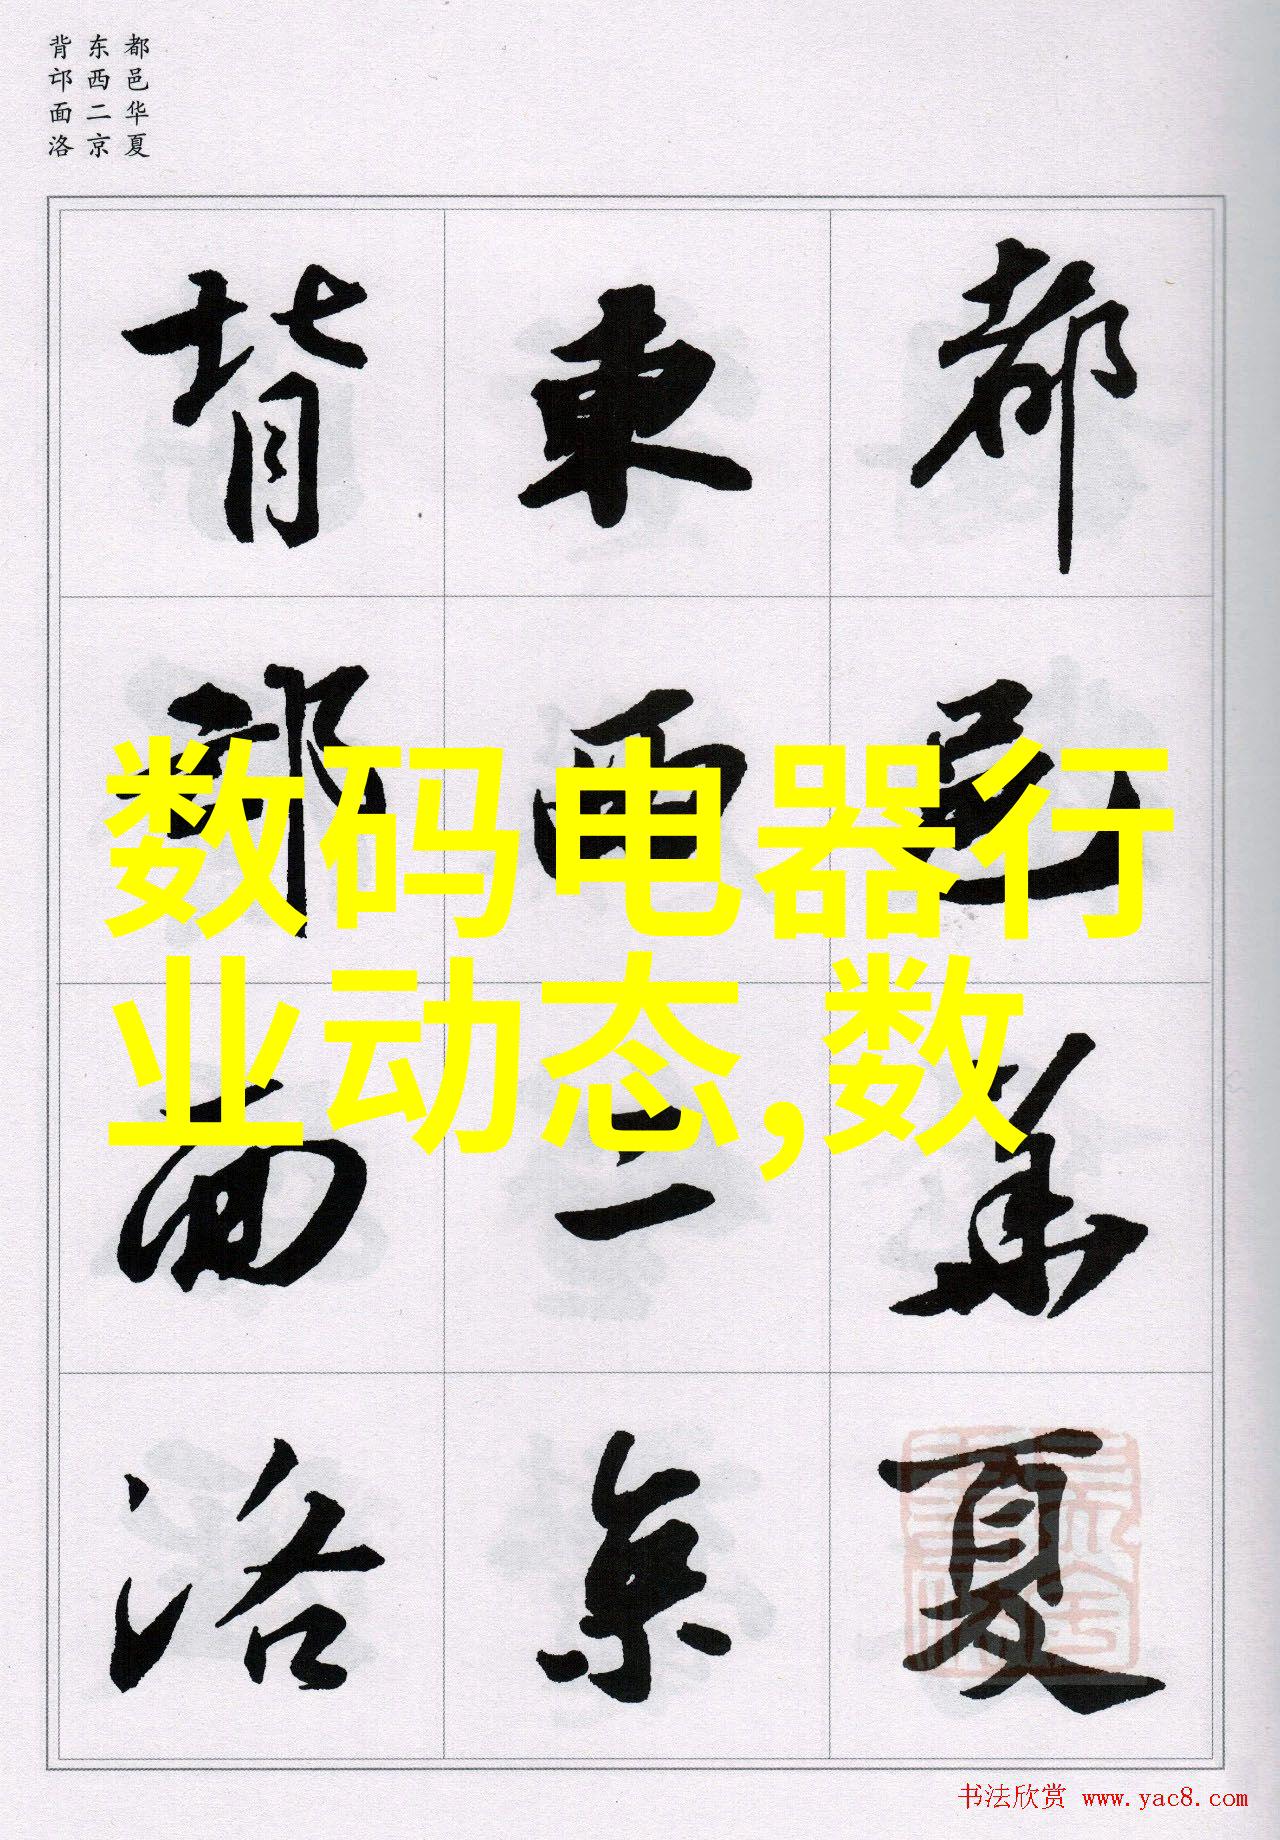 都邑华夏
东西二京
背邙面洛
都邑華夏
東西二京
背邙面洛
数码电器行
业动态,数
书法欣赏 www.yac8.com